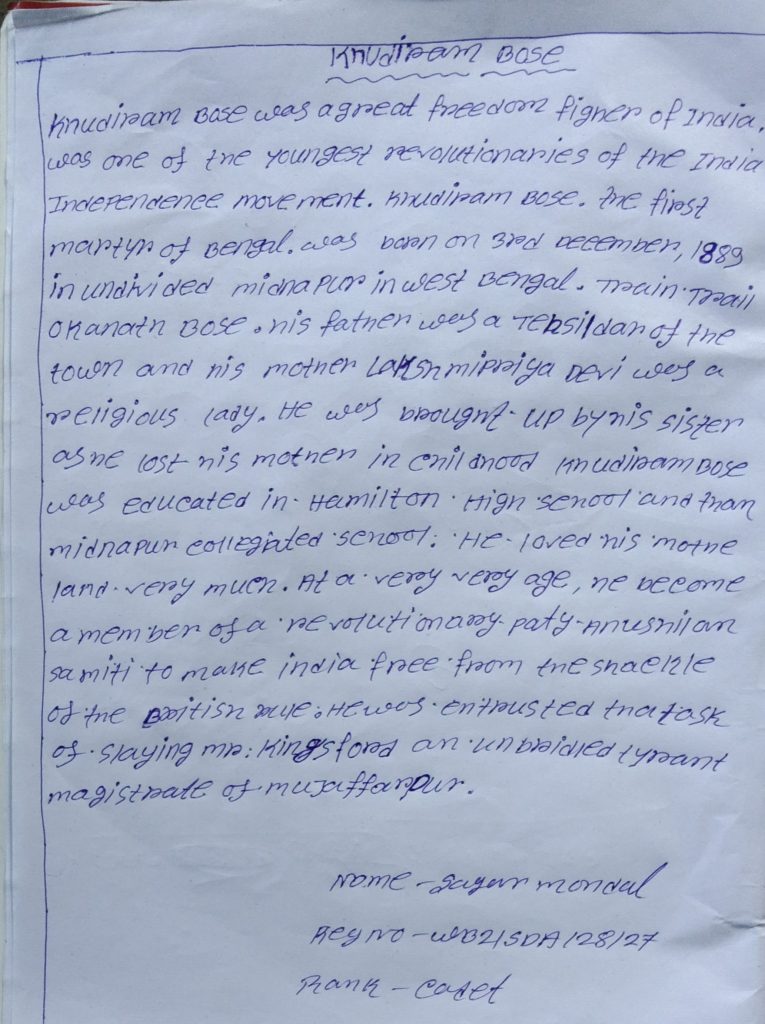 Khudiram Bose
Khudiram Bose was a great freedom figher of India.
was one of the youngest revolutionaries of the India
Independence movement. Khudiram Bose. The first
martyr of Bengal. was born on 3rd December, 1889
in undivided midnapur in west Bengal. Train Trail
okanath Bose. his father was a Tehsildar of the
town and his mother Lakshmipriya Devi was a
religious lady. He was brought up by his sister
as he lost his mother in childhood Khudiram Bose
was educated in Hamilton High school and than
midnapur collegiated school. He loved his mothe
land very much. At a very very age, he become
a member of a revolutionary paty Anushilan
samiti to make india free from the shackle
of the British rule. He was entrusted that task
of slaying mr: Kingsford an unbridled tyrant
magistrate of mujaffarpur.
Name - Sagar mondal
Reg no - WB21SDA128127
Rank - Cadet